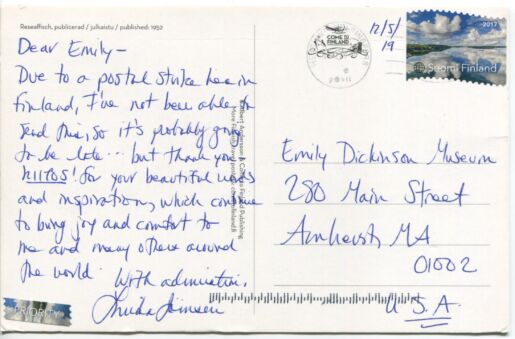 Reseaffisch, publicerad / julkaistu / published: 1952
Dear Emily-
Due to a postal strike here in
Finland, I've not been able to
send this, so it's probably going
to be late... but thank you
KIITOS! for your beautiful words
and inspiration, which continue
to bring joy and comfort to
me and many others around
the world.
With admiration,
PRIORITY
COME TO
FINLAND
12/5/
19
2017
Suomi Finland
Emily Dickinson Museum
280 Main Street
Amherst, MA
01002
U.S.A.